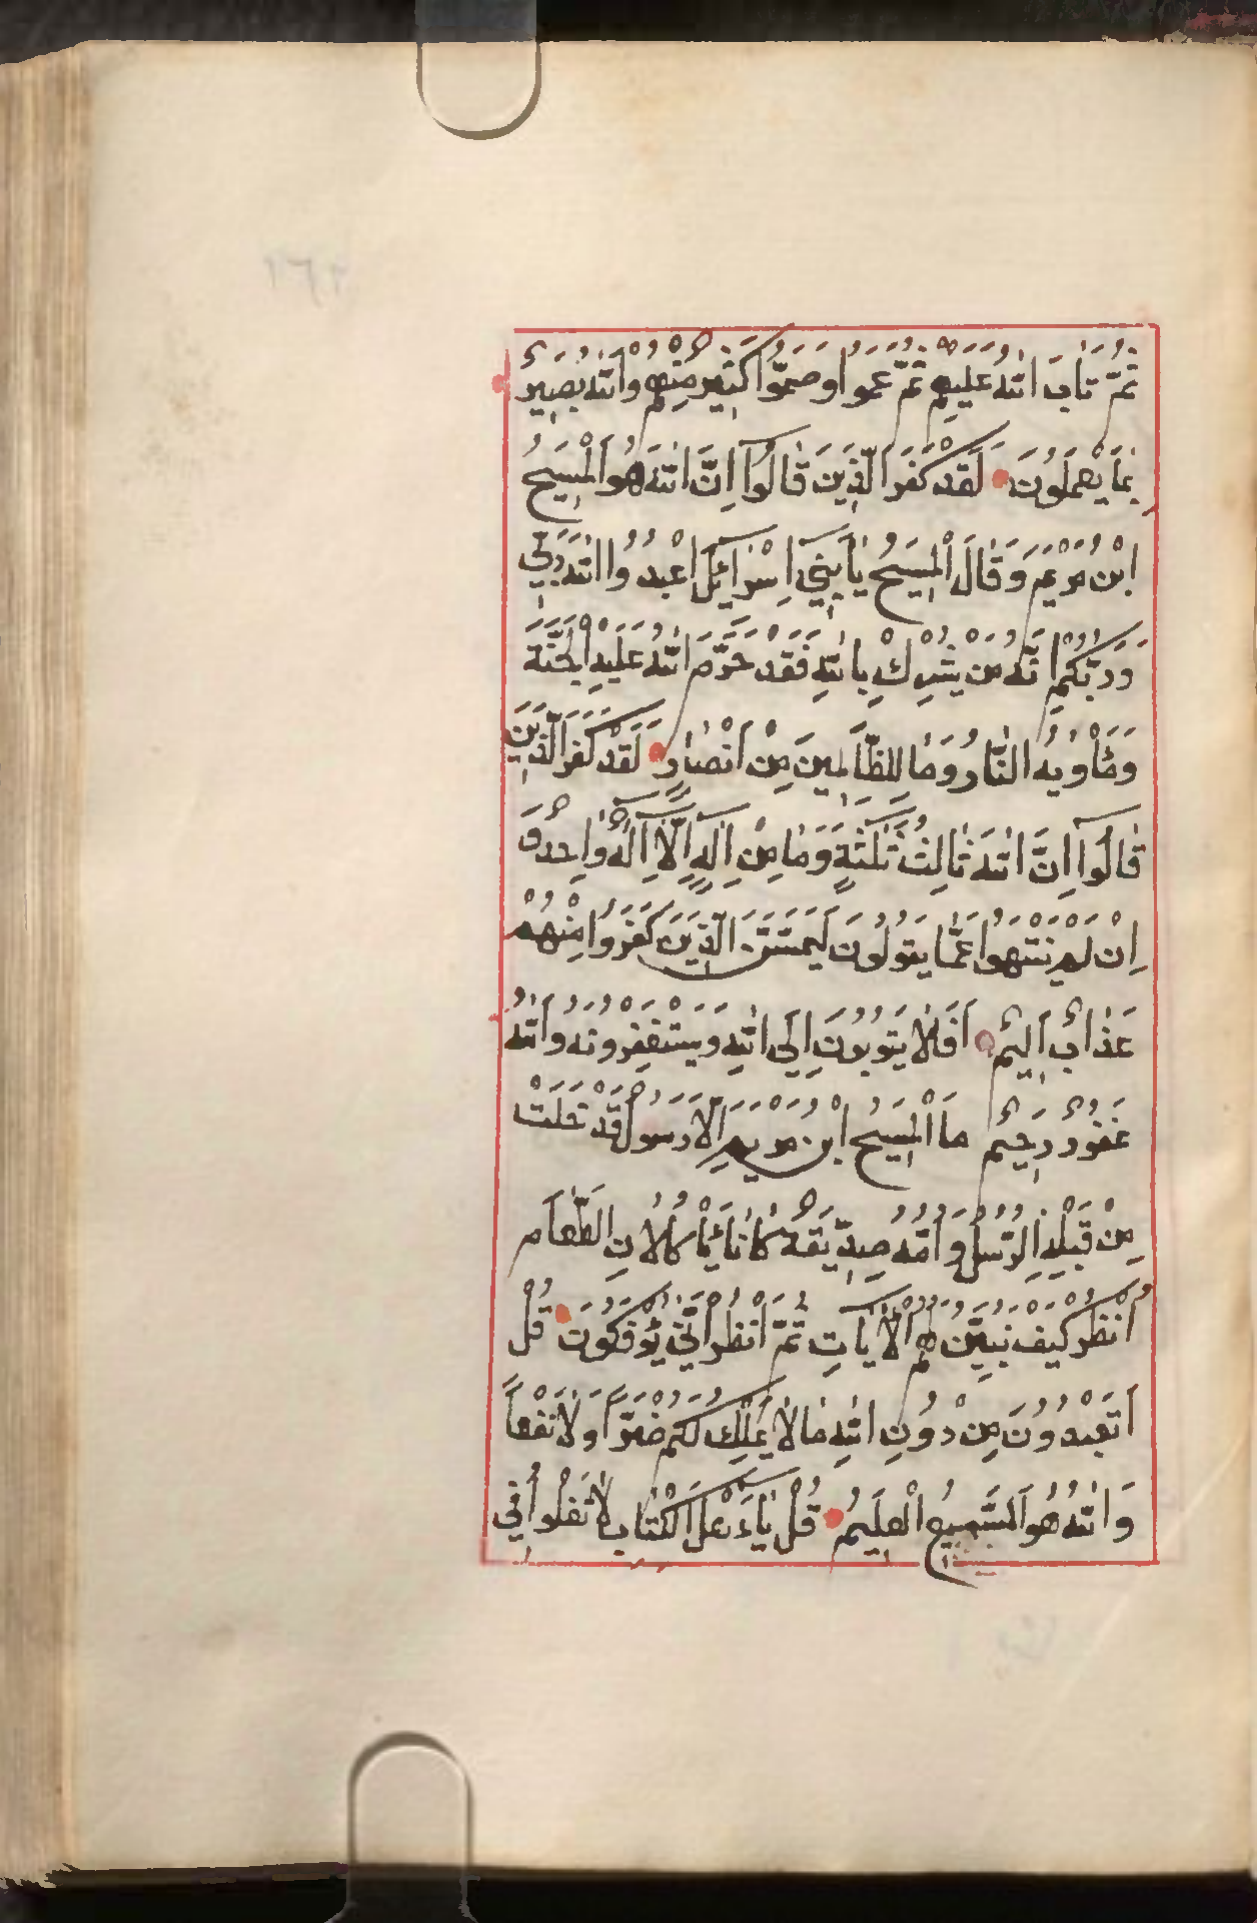 ثُمَّ تَابَ اللّٰهُ عَلَيْهِمْ ثُمَّ عَمُوا وَصَمُّوا كَثِيرٌ مِنْهُمْ وَاللّٰهُ بَصِيرٌ
بِمَا يَعْمَلُونَ لَقَدْ كَفَرَ الَّذِينَ قَالُوا اِنَّ اللّٰهَ هُوَ الْمَسِيحُ
ابْنُ مَرْيَمَ وَقَالَ الْمَسِيحُ يَا بَنِي اِسْرَائِلَ اعْبُدُوا اللّٰهَ رَبِّي
وَرَبَّكُمْ اِنَّهُ مَنْ يُشْرِكْ بِاللّٰهِ فَقَدْ حَرَّمَ اللّٰهُ عَلَيْهِ الْجَنَّةَ
وَمَأْوٰيهُ النَّارُ وَمَا لِلظَّالِمِينَ مِنْ اَنْصَارٍ لَقَدْ كَفَرَ الَّذِينَ
قَالُوا اِنَّ اللّٰهَ ثَالِثُ ثَلٰثَةٍ وَمَا مِنْ اِلٰهٍ اِلَّا اِلٰهٌ وَاحِدٌ وَ
اِنْ لَمْ يَنْتَهُوا عَمَّا يَقُولُونَ لَيَمَسَّنَّ الَّذِينَ كَفَرُوا مِنْهُمْ
عَذَابٌ اَلِيمٌ اَفَلَا يَتُوبُونَ اِلَى اللّٰهِ وَيَسْتَغْفِرُونَهُ وَاللّٰهُ
غَفُورٌ رَحِيمٌ مَا الْمَسِيحُ ابْنُ مَرْيَمَ اِلَّا رَسُولٌ قَدْ خَلَتْ
مِنْ قَبْلِهِ الرُّسُلُ وَاُمُّهُ صِدِّيقَةٌ كَانَا يَأْكُلَانِ الطَّعَامَ
اُنْظُرْ كَيْفَ نُبَيِّنُ لَهُمُ الْاٰيَاتِ ثُمَّ انْظُرْ اَنّٰى يُؤْفَكُونَ قُلْ
اَتَعْبُدُونَ مِنْ دُونِ اللّٰهِ مَا لَا يَمْلِكُ لَكُمْ ضَرّاً وَلَا نَفْعاً
وَاللّٰهُ هُوَ السَّمِيعُ الْعَلِيمُ قُلْ يَا اَهْلَ الْكِتَابِ لَا تَغْلُوا فِي